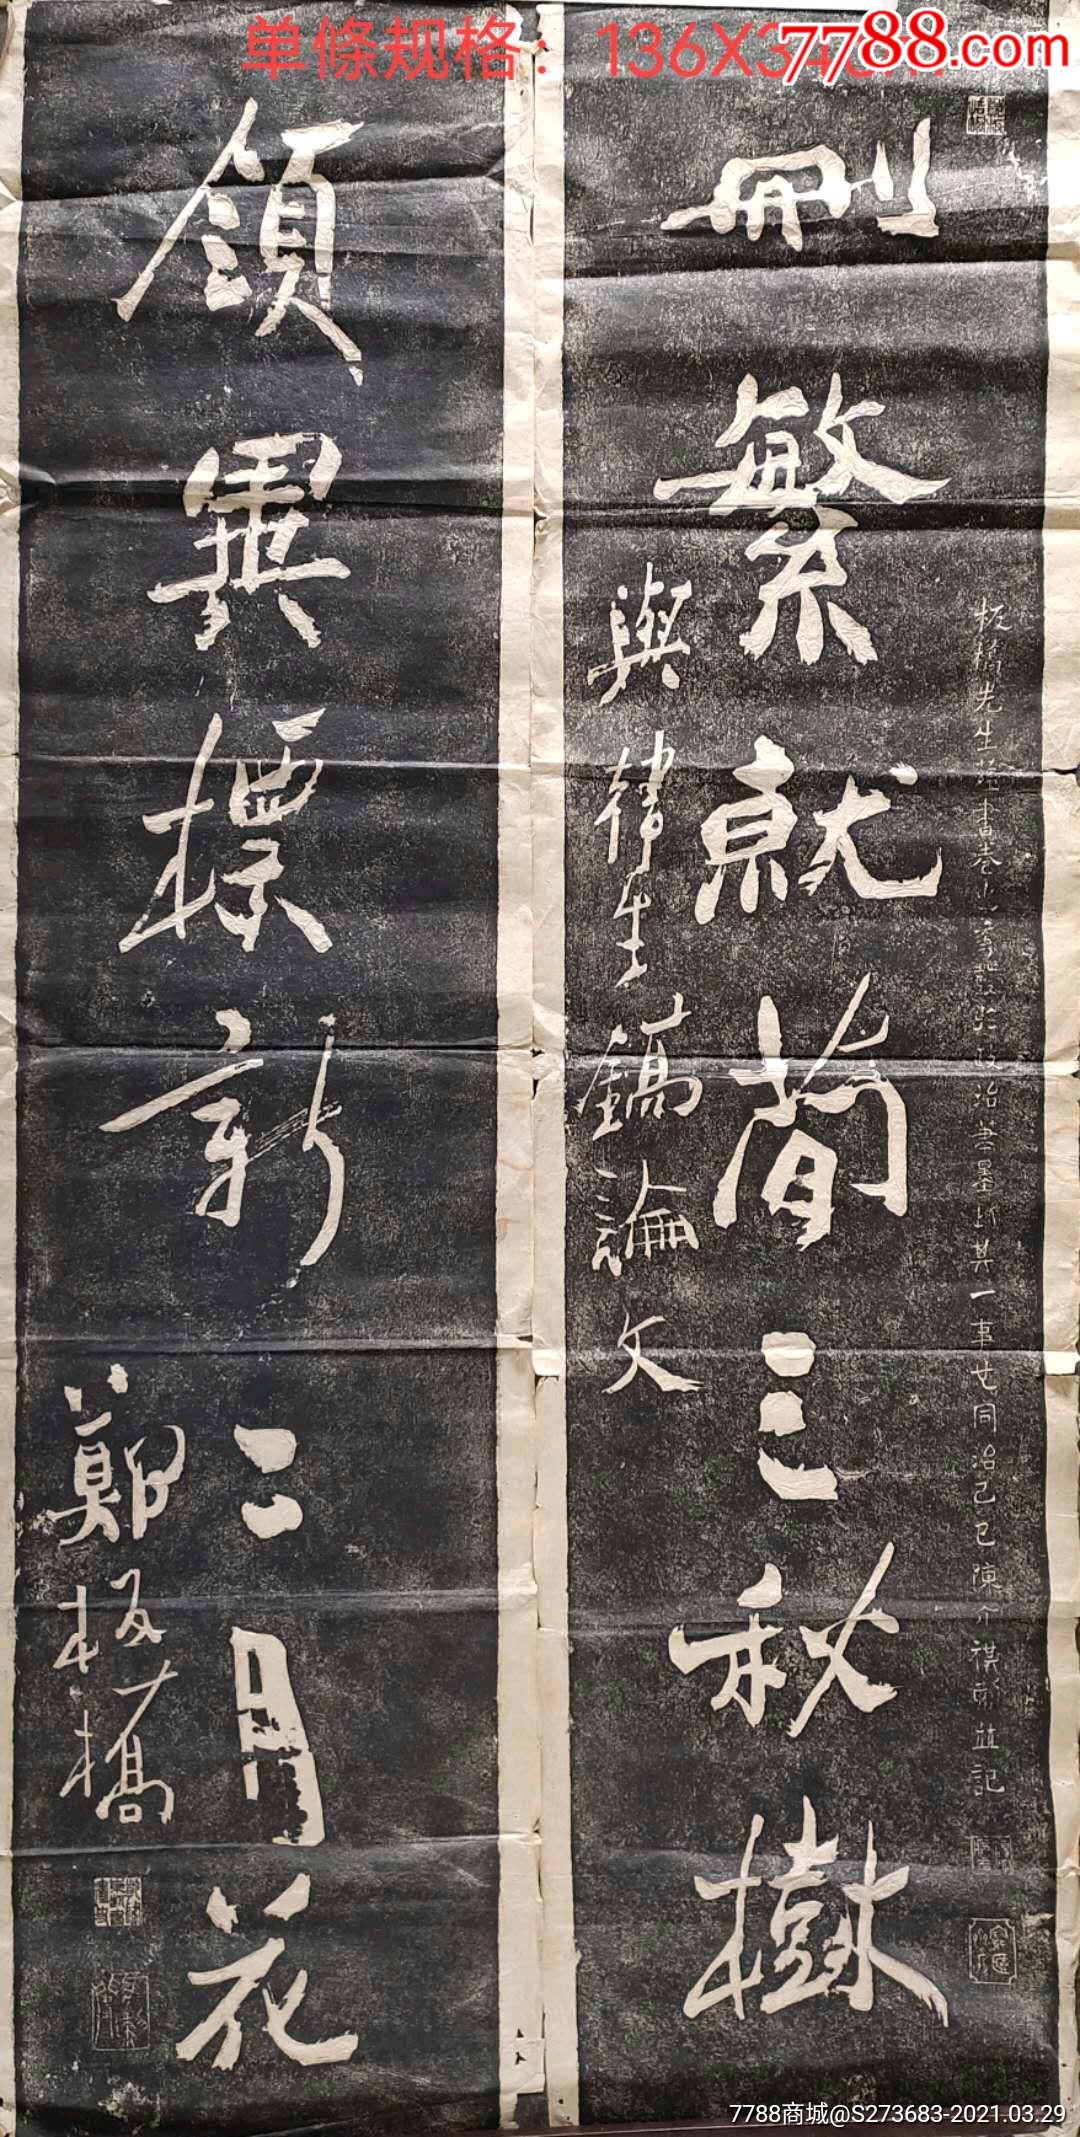 单條规格：136X34cm
7788.com
刪繁就簡三秋樹
與韓生鎬論文
板橋先生 書 政治 其一事也同治己巳陳介祺 並記
領異標新二月花
鄭板橋
7788商城@S273683-2021.03.29